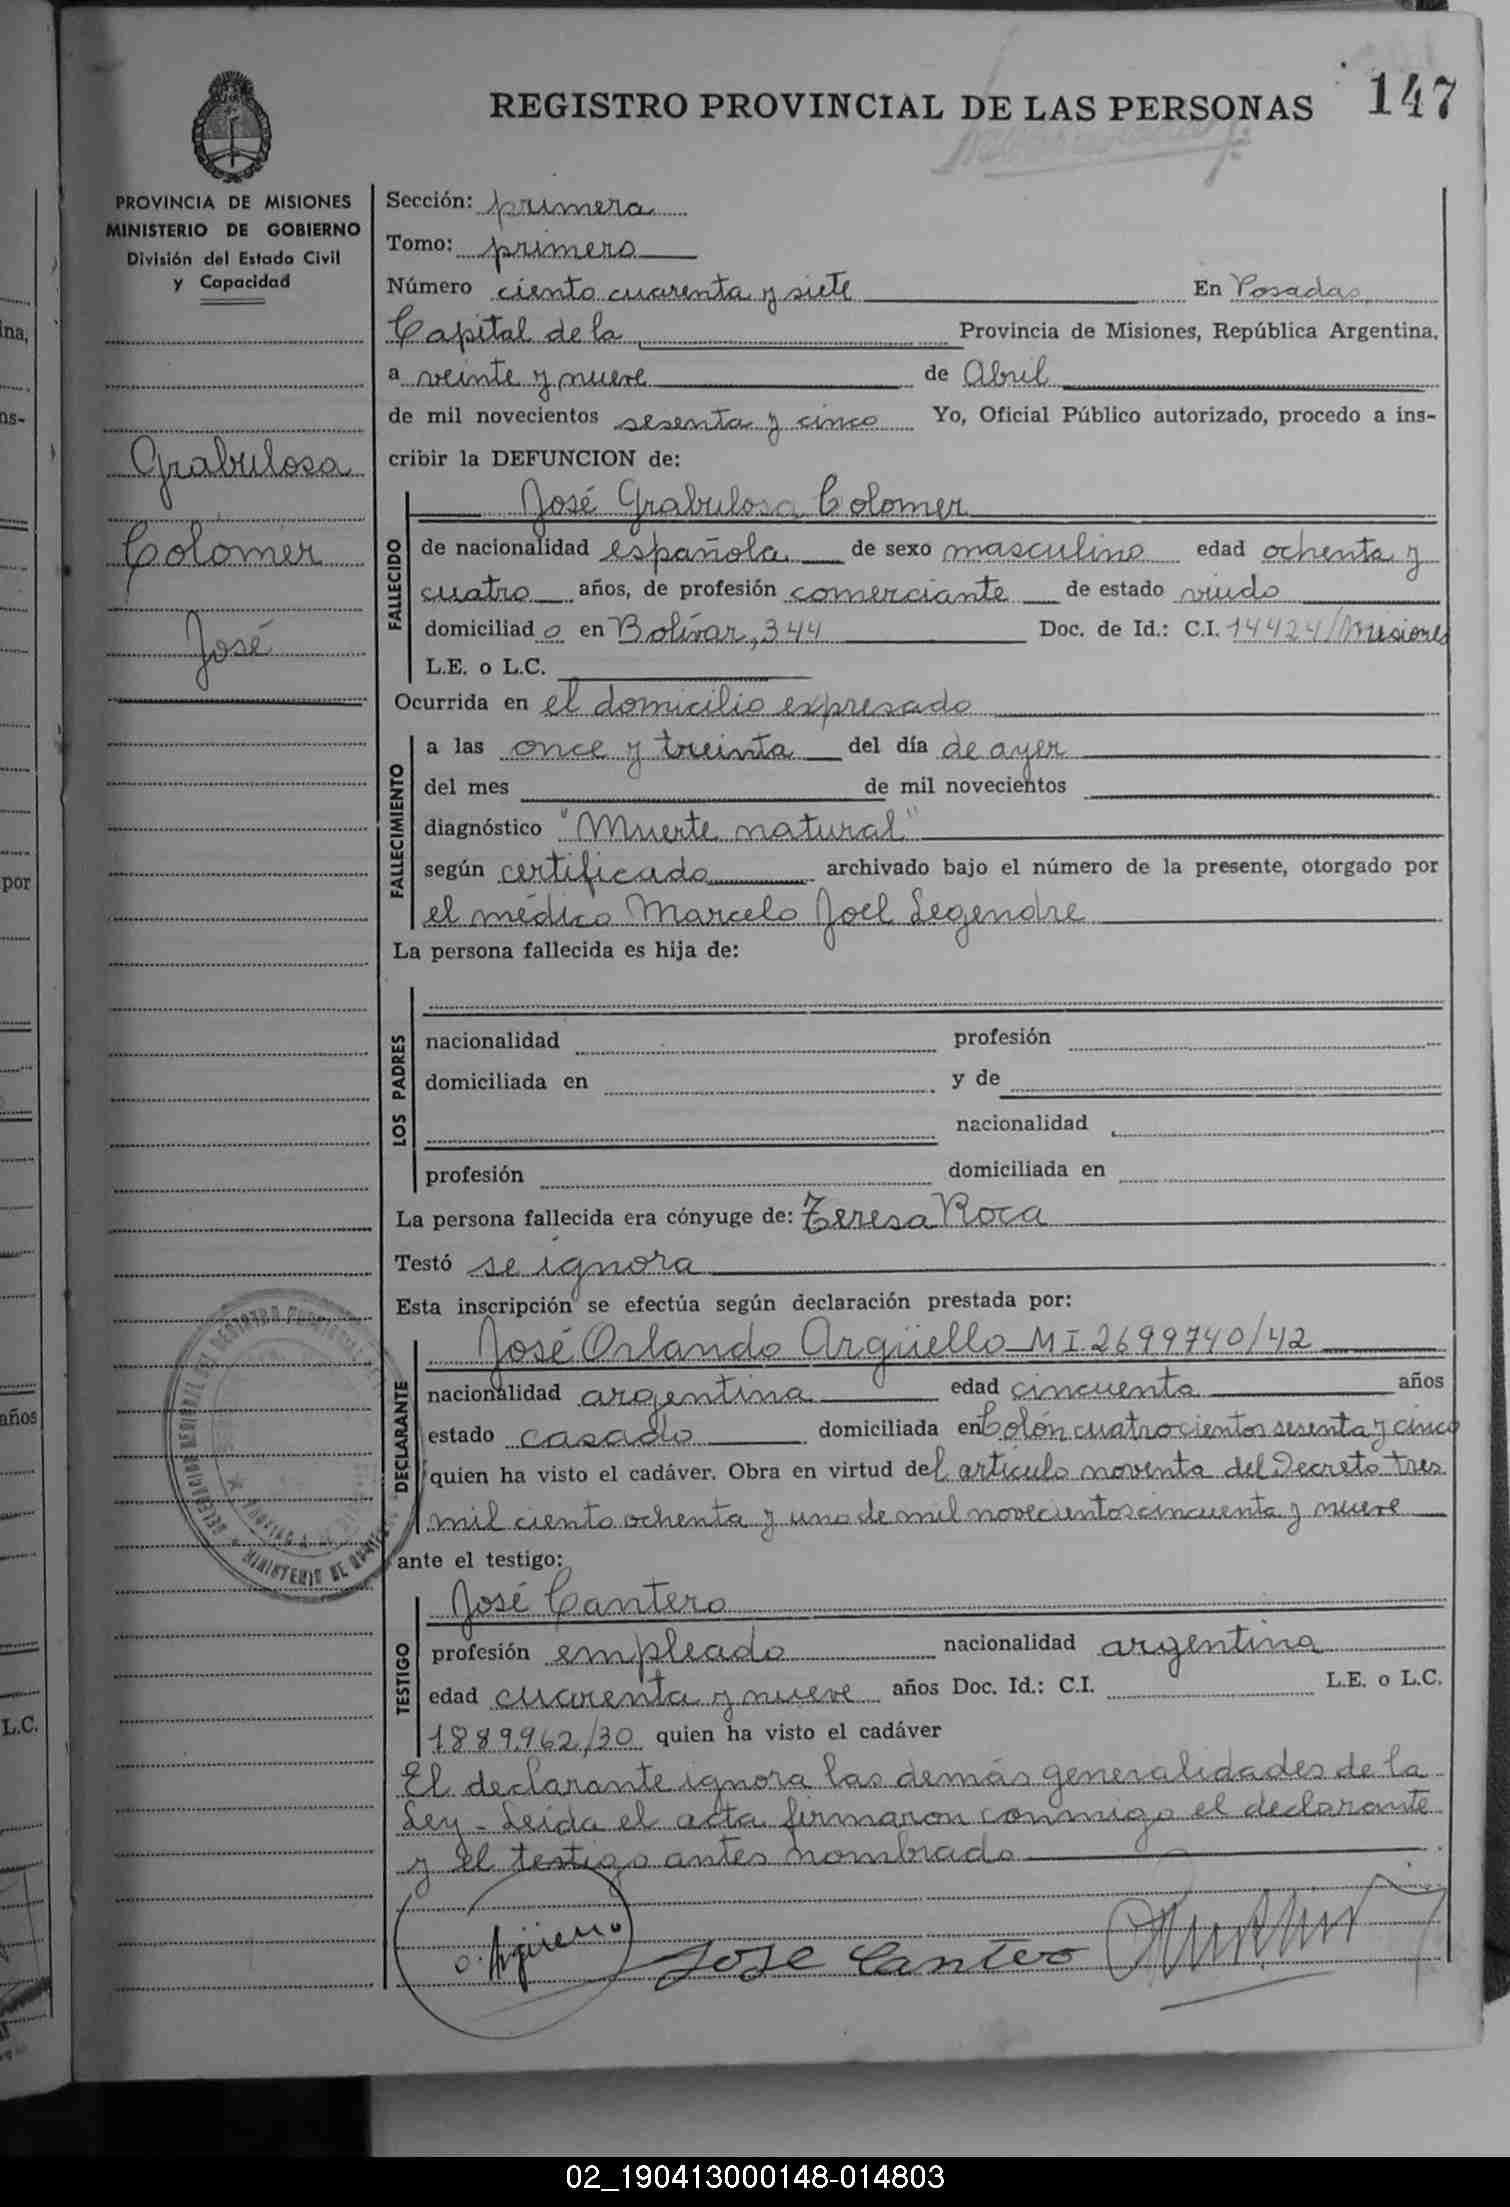 147
REGISTRO PROVINCIAL DE LAS PERSONAS
PROVINCIA DE MISIONES
MINISTERIO DE GOBIERNO
División del Estado Civil
y Capacidad
Grabulosa
Colomer
José
Sección: primera
Tomo: primero
Número ciento cuarenta y siete En Posadas,
Capital de la Provincia de Misiones, República Argentina,
a veinte y nueve de Abril
de mil novecientos sesenta y cinco Yo, Oficial Público autorizado, procedo a ins-
cribir la DEFUNCION de:
FALLECIDO
José Grabulosa Colomer
de nacionalidad española de sexo masculino edad ochenta y
cuatro años, de profesión comerciante de estado viudo
domiciliad o en Bolívar, 344 Doc. de Id.: C.I. 14424/Misiones
L.E. o L.C.
Ocurrida en el domicilio expresado
FALLECIMIENTO
a las once y treinta del día de ayer
del mes de mil novecientos
diagnóstico "Muerte natural"
según certificado archivado bajo el número de la presente, otorgado por
el médico Marcelo Joel Legendre
La persona fallecida es hija de:
LOS PADRES
nacionalidad profesión
domiciliada en y de
nacionalidad
profesión domiciliada en
La persona fallecida era cónyuge de: Teresa Roca
Testó se ignora
Esta inscripción se efectúa según declaración prestada por:
DECLARANTE
José Orlando Argüello M I 2699740/42
nacionalidad argentina edad cincuenta años
estado casado domiciliada en Colón cuatrocientos sesenta y cinco
quien ha visto el cadáver. Obra en virtud del artículo noventa del Decreto tres
mil ciento ochenta y uno de mil novecientos cincuenta y nueve
ante el testigo:
TESTIGO
José Cantero
profesión empleado nacionalidad argentina
edad cuarenta y nueve años Doc. Id.: C.I. L.E. o L.C.
1889.962/30 quien ha visto el cadáver
El declarante ignora las demás generalidades de la
Ley - Leída el acta firmaron conmigo el declarante
y el testigo antes nombrado
O. Argüello JOSE Cantero
ina,
ns-
por
años
L.C.
02_190413000148-014803